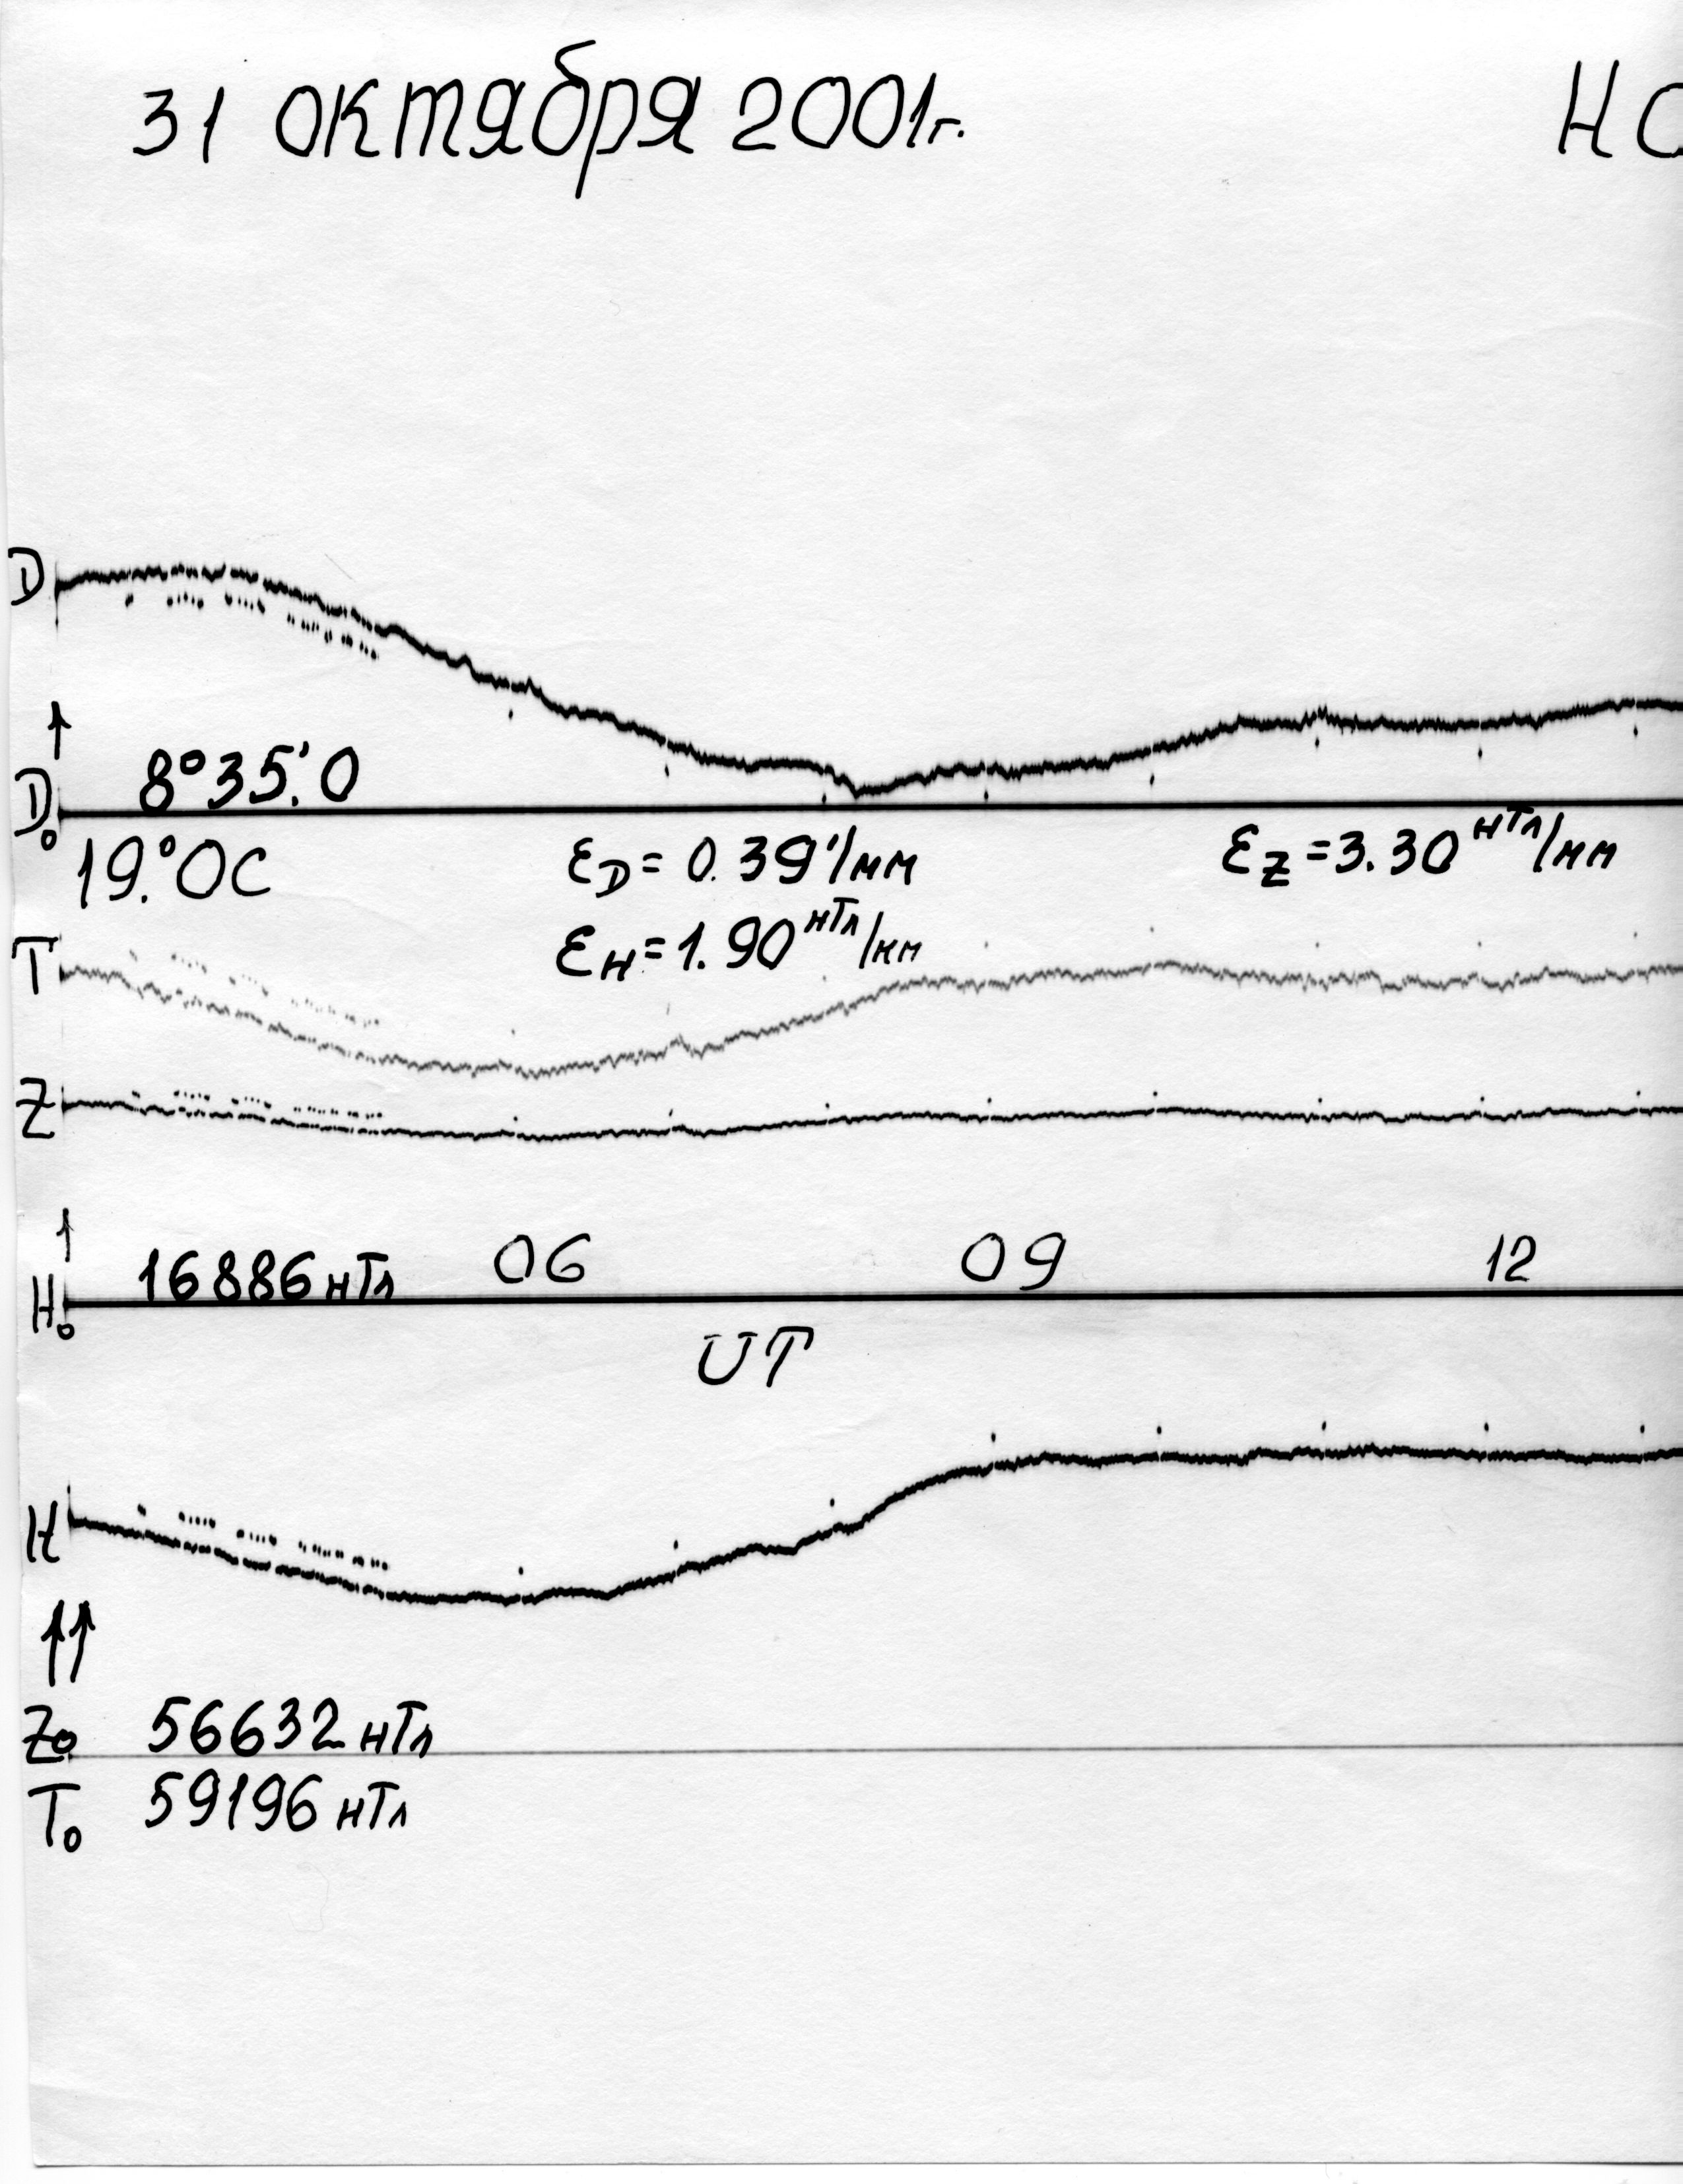 31 октября 2001г. НО
D
8°35.'0
D₀
19.°0С
εD = 0.39'/мм
εZ = 3.30 нТл/мм
εH = 1.90 нТл/мм
T
Z
16886 нТл 06 09 12
H₀
UT
H
Z₀ 56632 нТл
T₀ 59196 нТл